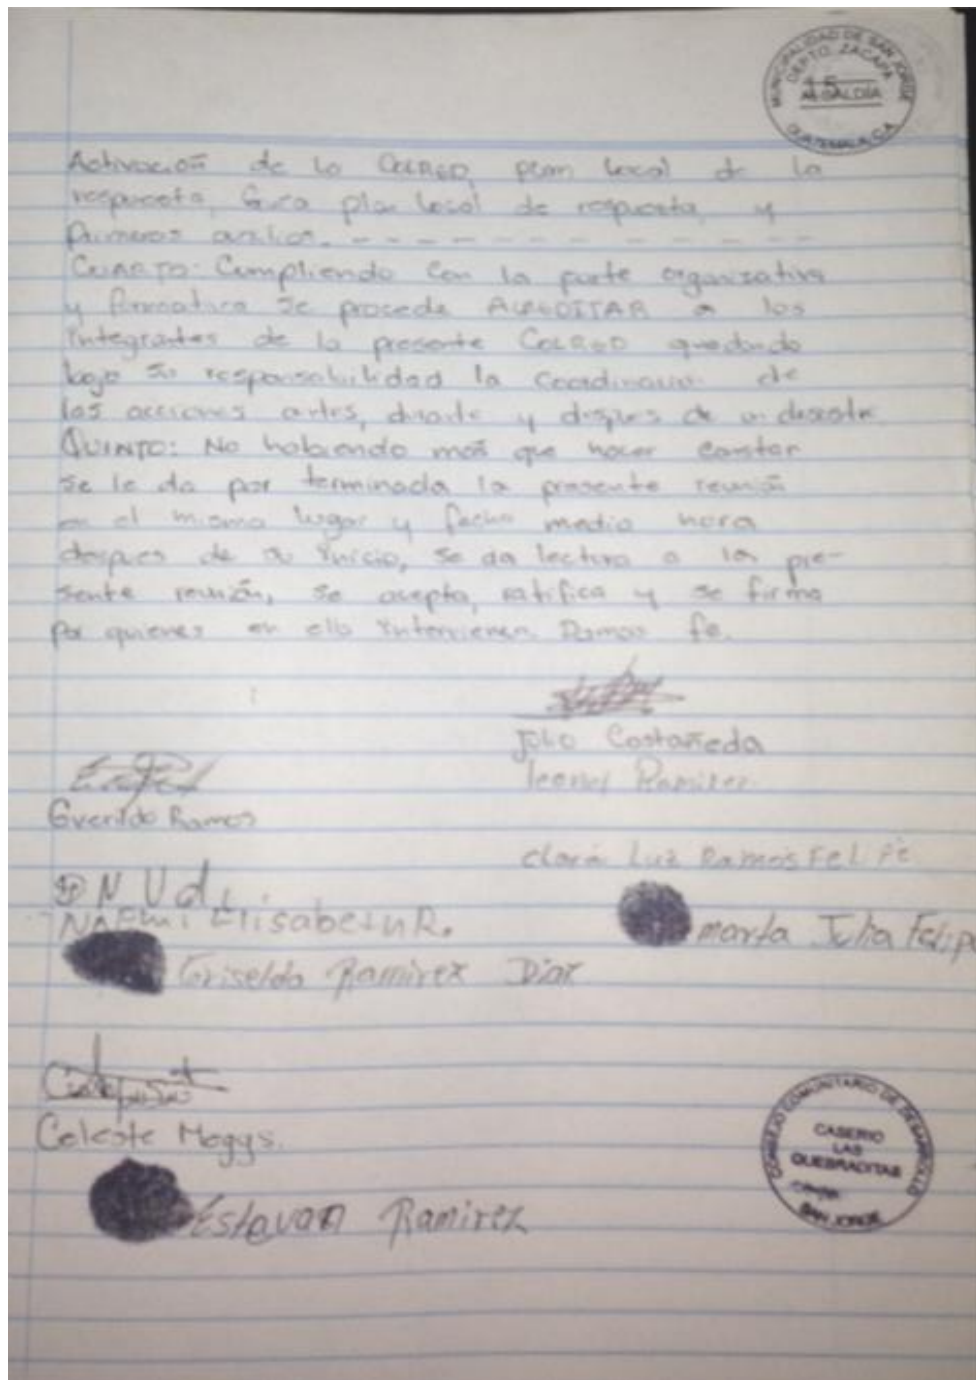 MUNICIPALIDAD DE SAN JORGE
DEPTO. ZACAPA
15
ALCALDIA
GUATEMALA, C.A.
Activación de la COLRED, plan local de la
respuesta, Guia plan local de respuesta, y
Primeros auxilios. - - - - - - - - - - - -
CUARTO: Cumpliendo con la parte organizativa
y formativa se procede ACREDITAR a los
integrantes de la presente COLRED quedando
bajo su responsabilidad la Coordinacion de
las acciones antes, durante y despues de un desastre
QUINTO: No habiendo mas que hacer constar
se le da por terminada la presente reunión
en el mismo lugar y fecha media hora
despues de su inicio, se da lectura a la pre-
sente reunión, se acepta, ratifica y se firma
por quienes en ella intervienen. Damos fe.
Julio Castañeda
leonel Ramirez.
Everildo Ramos
clara Luz Ramos FeLiPe
NAEMi Elisabeth R.
marta Julia Felipe
Griselda Ramirez Diaz
Celeste Moggs.
CONSEJO COMUNITARIO DE DESARROLLO
CASERIO
LAS
QUEBRADITAS
SAN JORGE
Estavan Ramirez